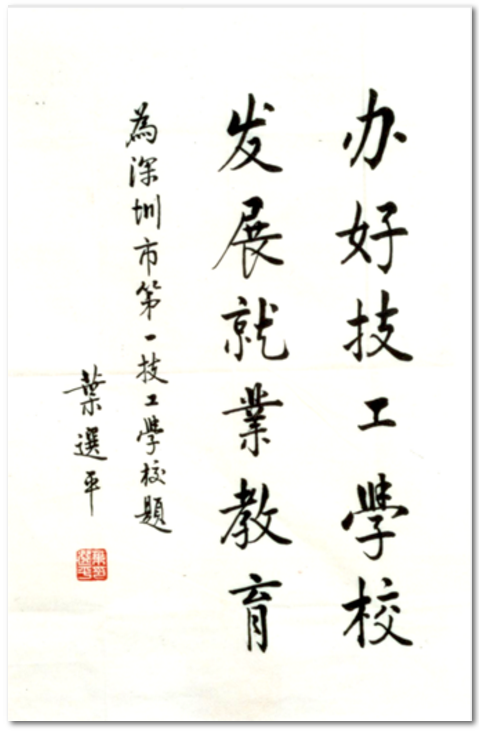 办好技工學校
发展就業教育
為深圳市第一技工學校題
葉選平